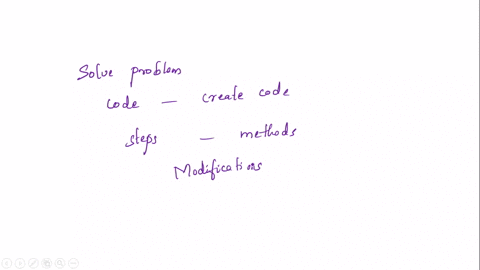 Solve problem
code — create code
steps — methods
Modifications